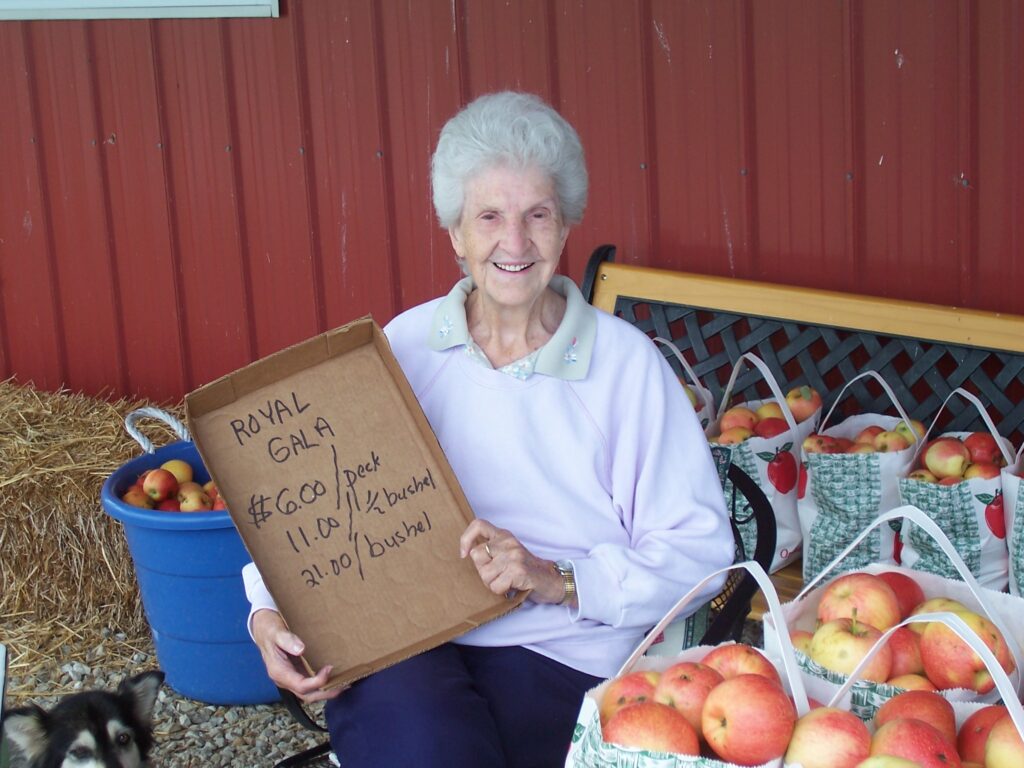 ROYAL
GALA
$6.00/peck
11.00/½ bushel
21.00/bushel